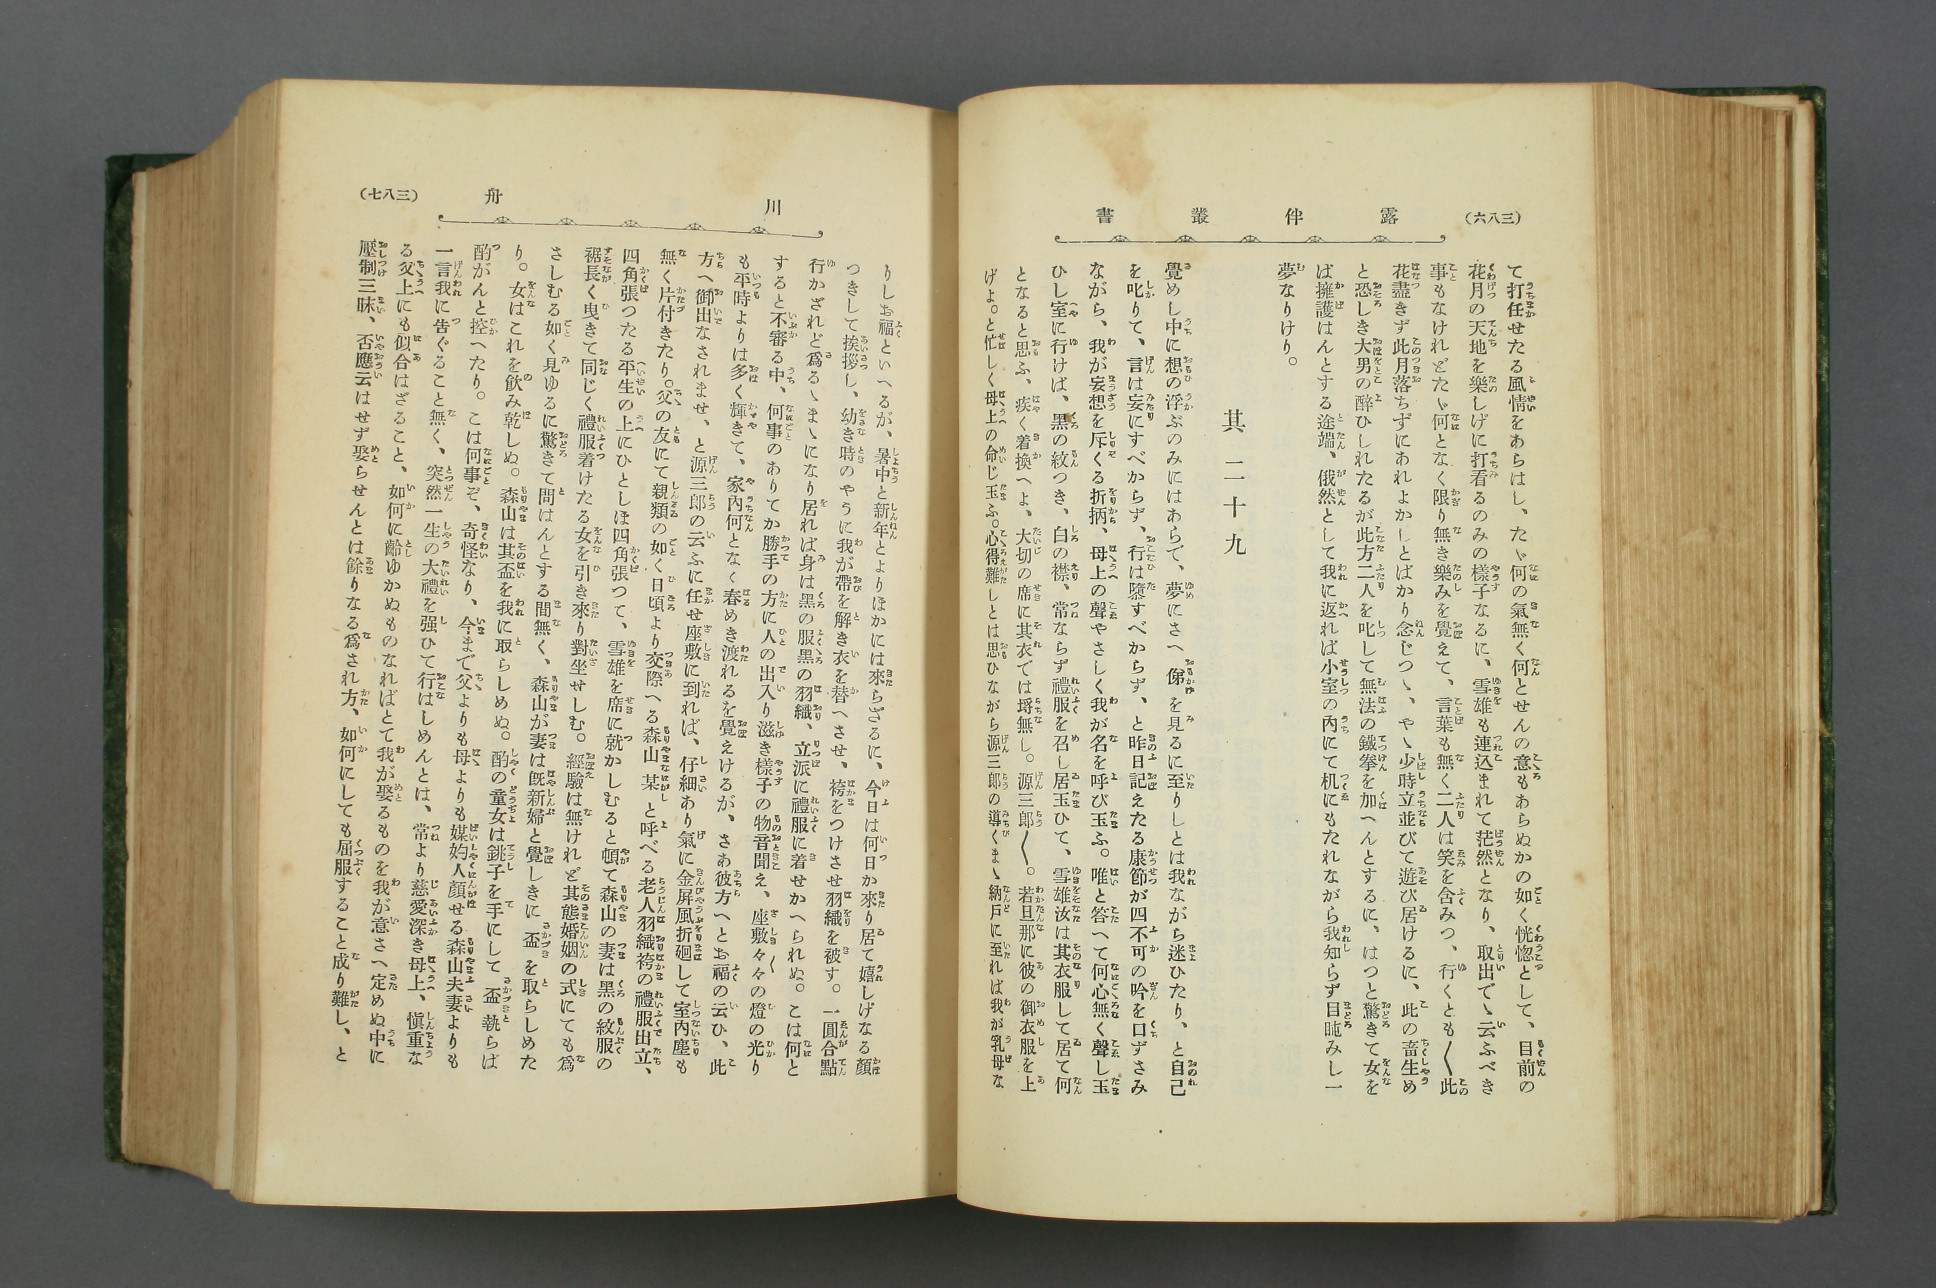 (三八六)
露伴叢書
て打任せたる風情をあらはし、たゞ何の氣無く何とせんの意もあらぬかの如く恍惚として、目前の
花月の天地を樂しげに打看るのみの樣子なるに、雪雄も連込まれて茫然となり、取出でゝ云ふべき
事もなけれどたゞ何となく限り無き樂みを覺えて、言葉も無く二人は笑を含みつ、行くとも〳〵此
花盡きず此月落ちずにあれよかしとばかり念じつゝ、やゝ少時立並びて遊び居けるに、此の畜生め
と恐しき大男の醉ひしれたるが此方二人を叱して無法の鐵拳を加へんとするに、はつと驚きて女を
ば擁護はんとする途端、俄然として我に返れば小室の內にて机にもたれながら我知らず目眈みし一
夢なりけり。
其二十九
覺めし中に想の浮ぶのみにはあらで、夢にさへ俤を見るに至りしとは我ながら迷ひたり、と自己
を叱りて、言は妄にすべからず、行は隳すべからず、と昨日記えたる康節が四不可の吟を口ずさみ
ながら、我が妄想を斥くる折柄、母上の聲やさしく我が名を呼び玉ふ。唯と答へて何心無く聲し玉
ひし室に行けば、黑の紋つき、白の襟、常ならず禮服を召し居玉ひて、雪雄汝は其衣服して居て何
となると思ふ、疾く着換へよ、大切の席に其衣では埒無し。源三郎〳〵。若旦那に彼の御衣服を上
げよ。と忙しく母上の命じ玉ふ。心得難しとは思ひながら源三郎の導くまゝ納戶に至れば我が乳母な
(三八七)
川舟
りしお福といへるが、暑中と新年とよりほかには來らざるに、今日は何日か來り居て嬉しげなる顏
つきして挨拶し、幼き時のやうに我が帶を解き衣を替へさせ、袴をつけさせ羽織を被す。一圓合點
行かざれど爲るゝまゝになり居れば身は黑の服黑の羽織、立派に禮服に着せかへられぬ。こは何と
すると不審る中、何事のありてか勝手の方に人の出入り滋き樣子の物音聞え、座敷々々の燈の光り
も平時よりは多く輝きて、家內何となく春めき渡れるを覺えけるが、さあ彼方へとお福の云ひ、此
方へ御出なされませ、と源三郎の云ふに任せ座敷に到れば、仔細あり氣に金屏風折廻して室內塵も
無く片付きたり。父の友にて親類の如く日頃より交際へる森山某と呼べる老人羽織袴の禮服出立、
四角張つたる平生の上にひとしほ四角張つて、雪雄を席に就かしむると頓て森山の妻は黑の紋服の
裾長く曳きて同じく禮服着けたる女を引き來り對坐せしむ。經驗は無けれど其態婚姻の式にても爲
さしむる如く見ゆるに驚きて問はんとする間無く、森山が妻は旣新婦と覺しきに盃を取らしめた
り。女はこれを飲み乾しぬ。森山は其盃を我に取らしめぬ。酌の童女は銚子を手にして盃執らば
酌がんと控へたり。こは何事ぞ、奇怪なり、今まで父よりも母よりも媒妁人顏せる森山夫妻よりも
一言我に告ぐること無く、突然一生の大禮を强ひて行はしめんとは、常より慈愛深き母上、愼重な
る父上にも似合はざること、如何に齡ゆかぬものなればとて我が娶るものを我が意さへ定めぬ中に
壓制三昧、否應云はせず娶らせんとは餘りなる爲され方、如何にしても屈服すること成り難し、と